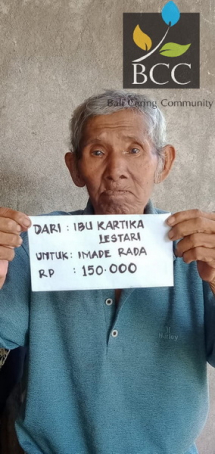 BCC
Bali Caring Community
DARI : IBU KARTIKA
LESTARI
UNTUK: IMADE RADA
RP : 150.000